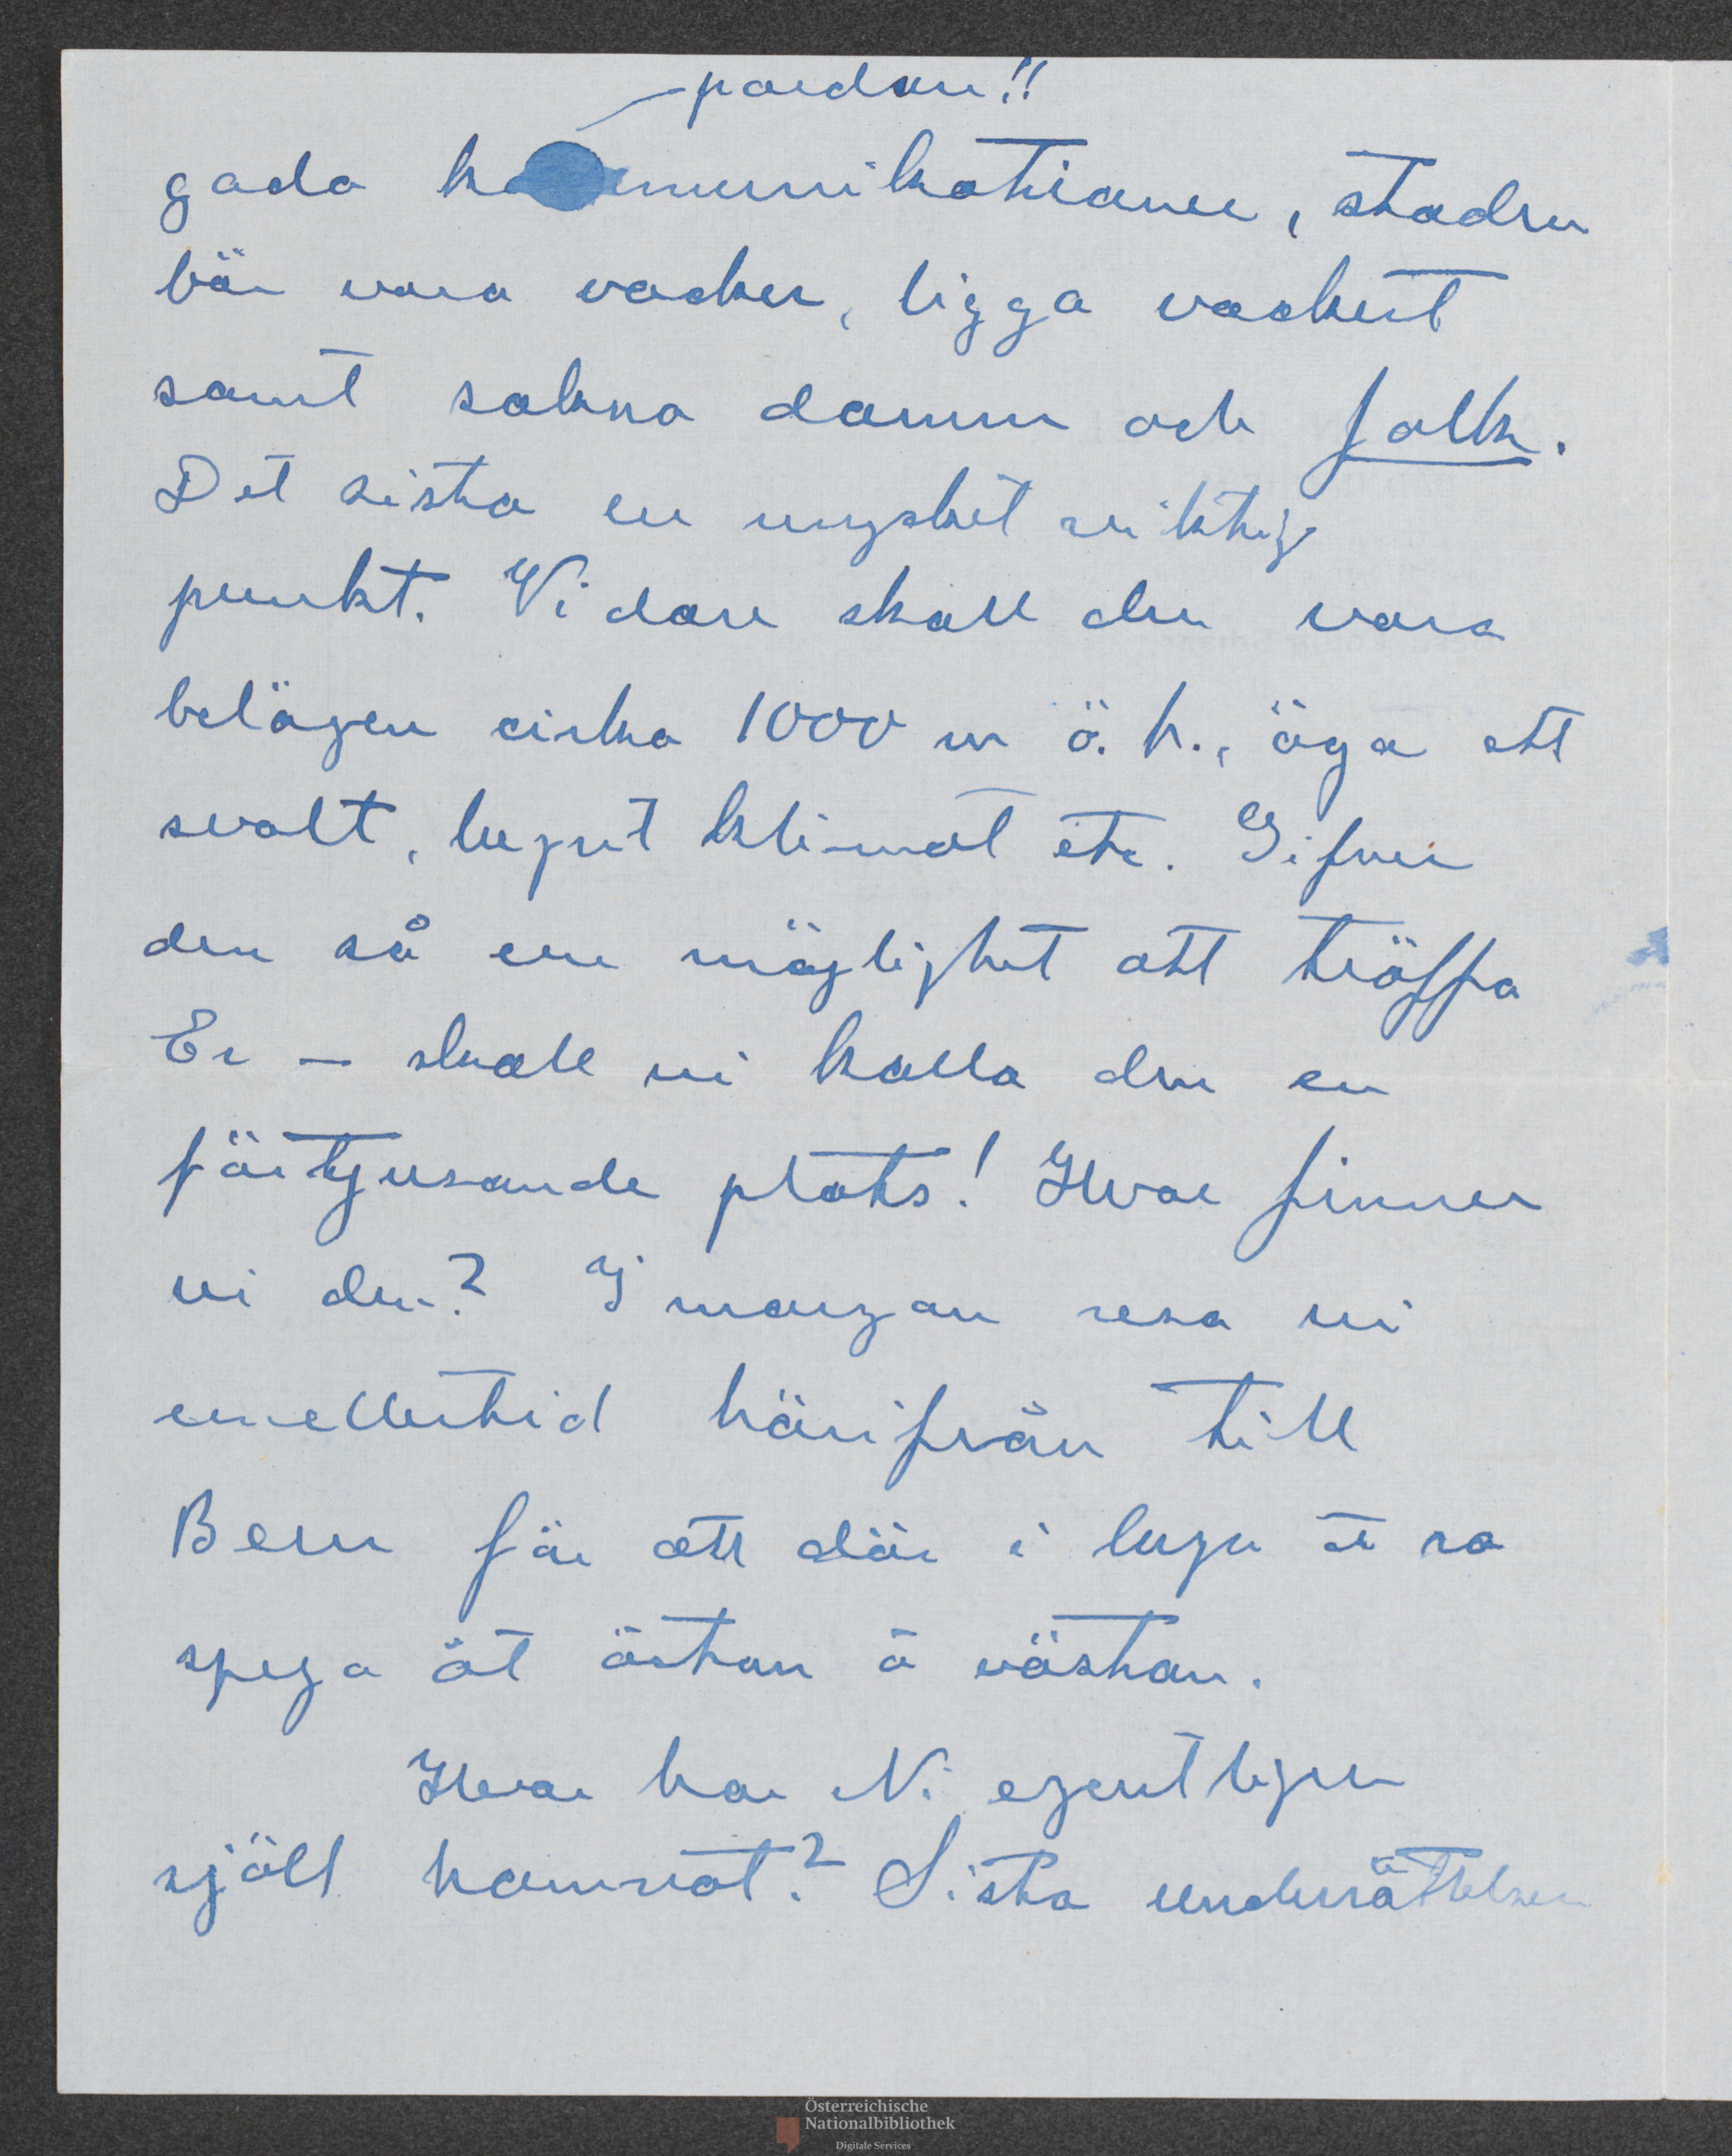 pardon!!
goda kommunikationer, staden
bör vara vacker, ligga vackert
samt sakna damm och folk.
Det sista en mycket viktig
punkt. Vidare skall den vara
belägen cirka 1000 m ö. h., äga ett
svalt, lugnt klimat etc. Gifver
den så en möjlighet att träffa
Er – skall vi kalla den en
förtjusande plats! Hvar finner
vi den? I morgon resa vi
emellertid härifrån till
Bern för att där i lugn å ro
speja åt östan å västan.
Hvar har Ni egentligen
själf hamnat? Sista underrättelsen
Österreichische
Nationalbibliothek
Digitale Services